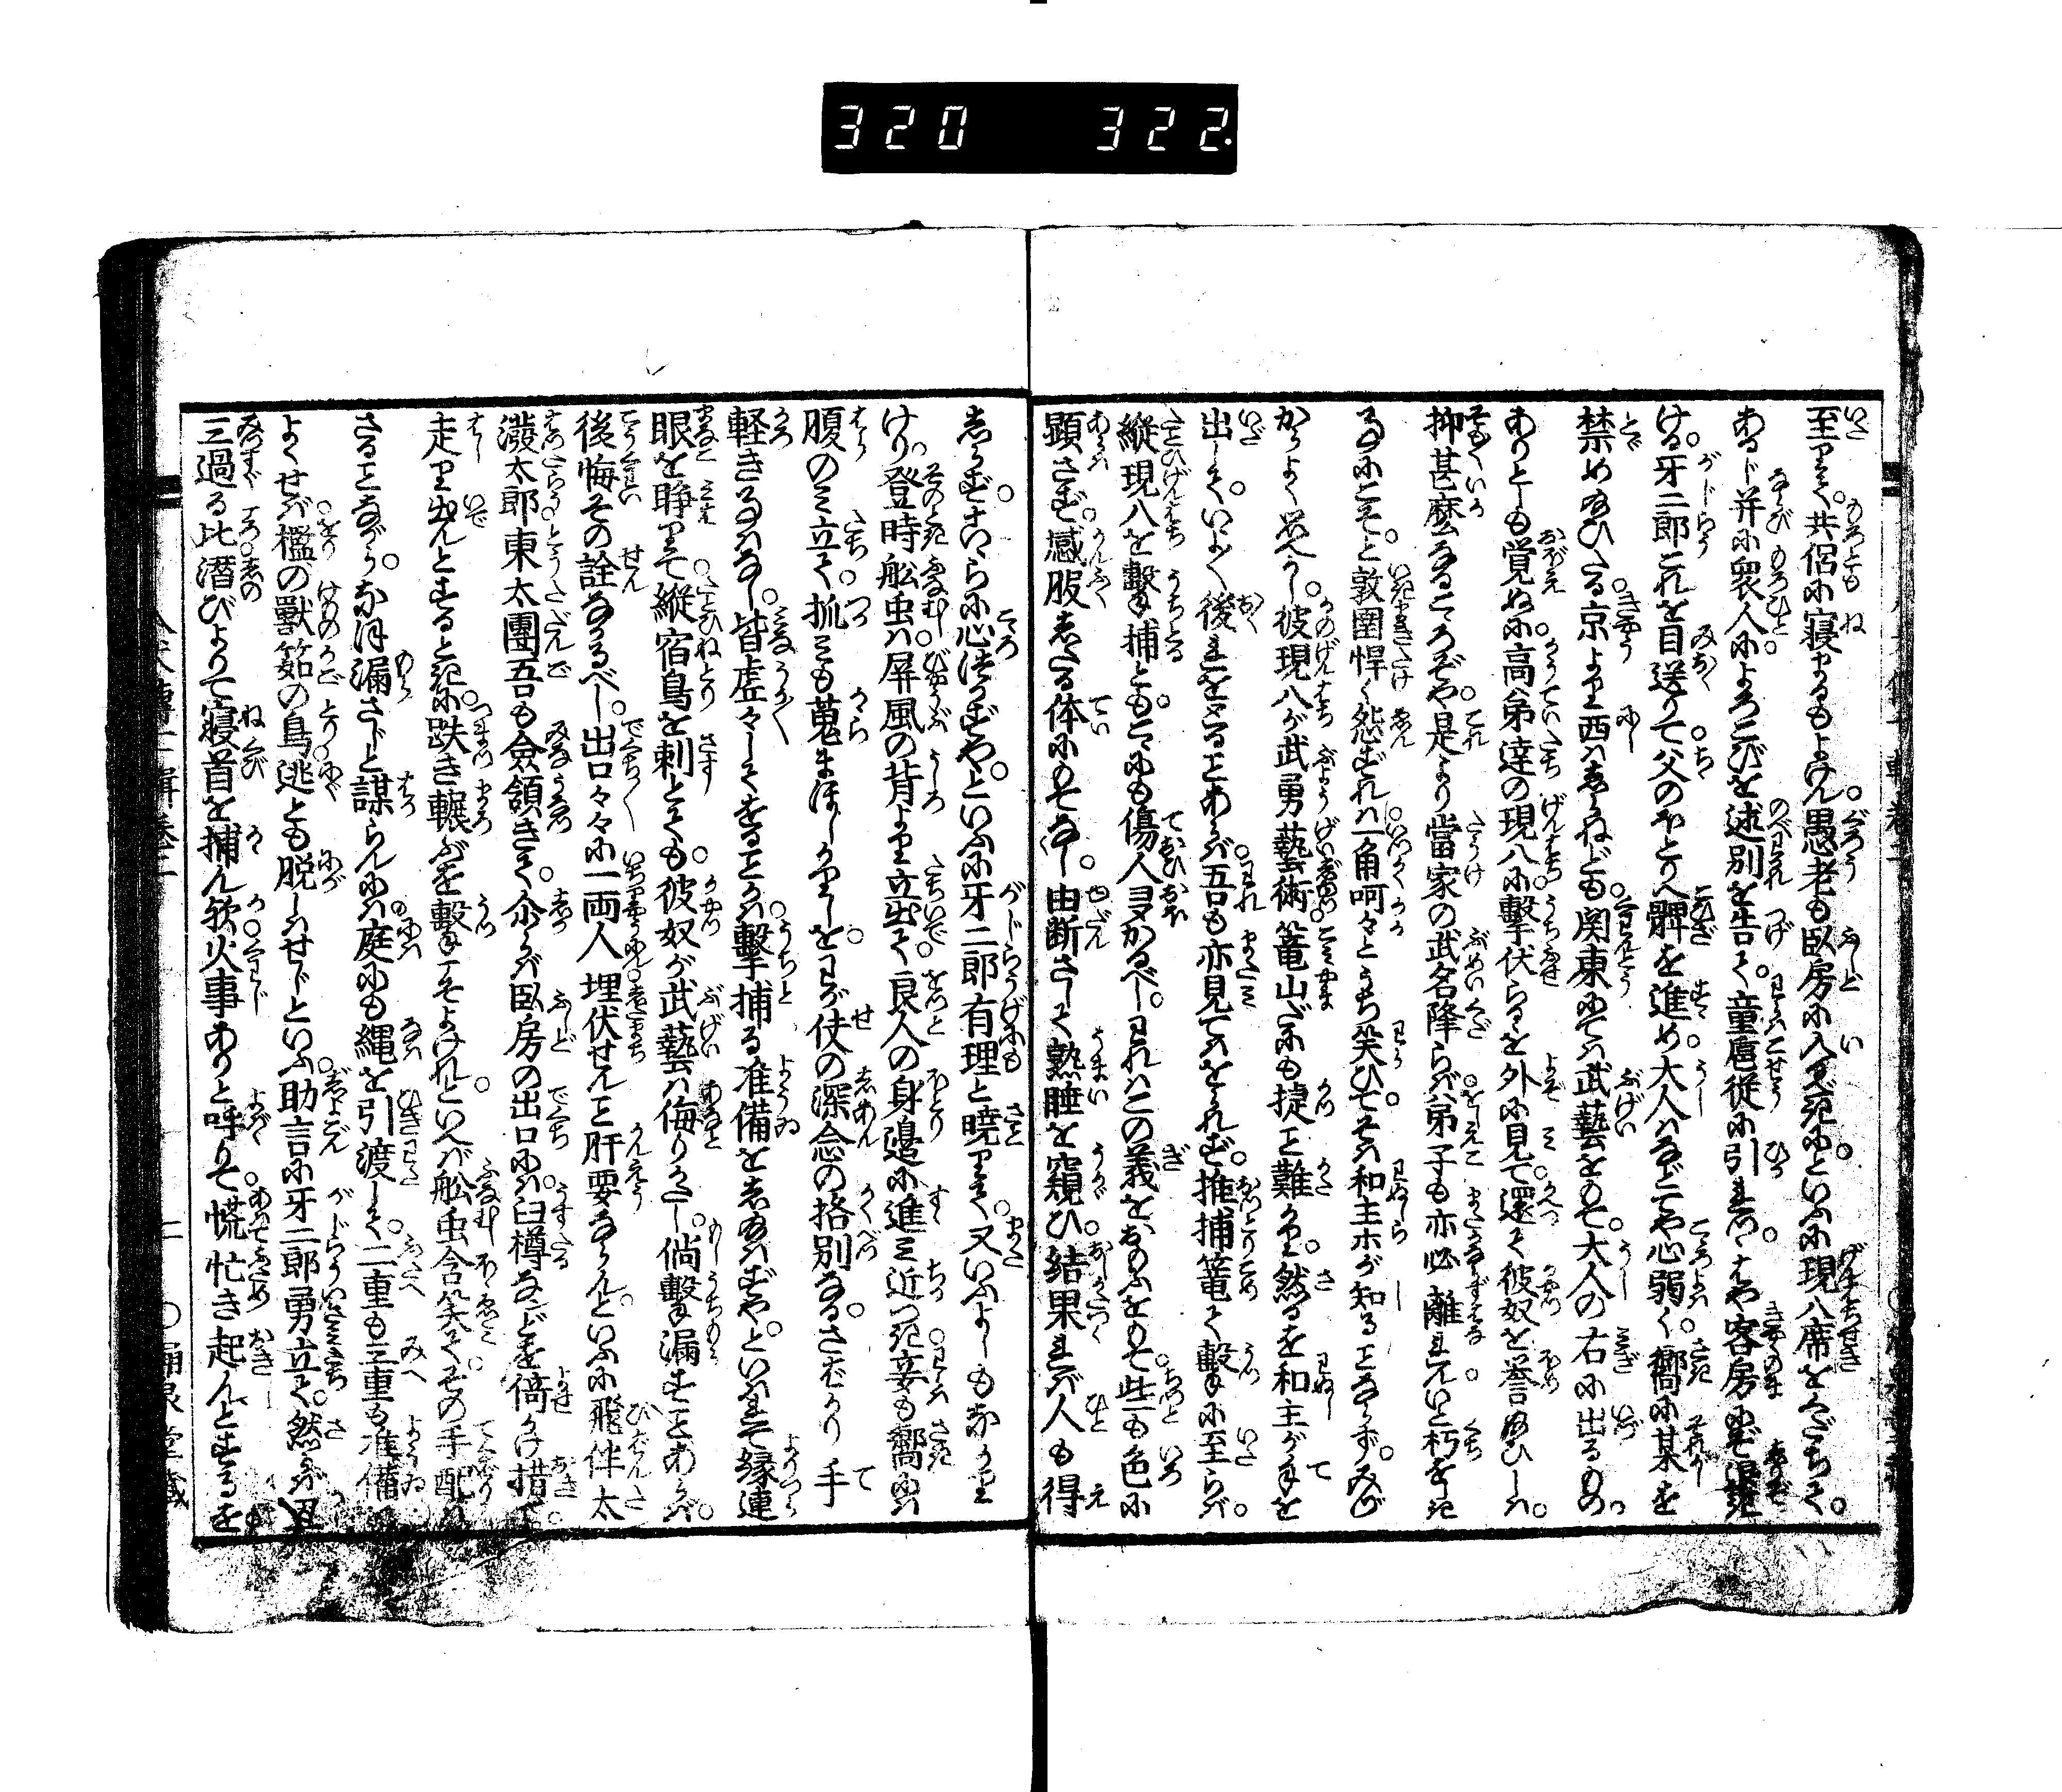 320 322.
至りて共侶に寝まるもよけん愚老も臥房に入るべきに。といふに現八席をくだちて。
あるじ并に衆人に。よろこびを述別を告て。童扈従に引れつゝ。はや客房にぞ退き
ける。牙二郎これを目送りて。父のほとりへ髀を進め。大人はなどてや心弱く。嚮に某を
禁め給ひたる。京より西はしらねども。関東にては武藝をもて。大人の右に出るもの
ありとしも覚ぬに。高弟達の現八に。擊伏らるゝを外に見て。還て彼奴を誉給ひしは。
抑甚麼なるこゝろぞや。是より當家の武名降らば。弟子も亦必離れん。いと朽をしき
事にこそ。と敦圉悍く怨ずれば一角呵々とうち笑ひて。そは和主ホが知ることならず。みづ
からよく思へかし。彼現八が武勇藝術。篭山だにも捷こと難かり。然るを和主が手を
出して。いよゝ後れをとることあらば。吾も亦見てはをられず。推捕篭て擊に至らば。
縦現八を擊捕とも。こゝにも傷人多かるべし。われはこの義をおもふをもて。些も色に
顕さず。感服したる体にもてなし。由断さして熟睡を窺ひ。結果れば人も得
しらず。さはらに心つかずや。といふに牙二郎有理と曉りて。又いふよしもなかり
けり。登時舩虫は。屏風の背より立出て。良人の身邊に進み近つき。妾も嚮には
腹のみ立て。抓みも蒐まほしかりしを。わが伕の深念の格別なる。さばかり手
軽き事はなし。皆虚々してをることかは。擊捕る准備をし給はずや。といはれて縁連
眼を睜りて。縦宿鳥を刺とても。彼奴が武藝は侮りかたし。倘擊漏すことあらば。
後悔その詮なかるべし。出口々々に一両人。埋伏せんこと肝要ならん。といふに飛伴太
潑太郎。東太團吾も僉領きて。尒らば臥房の出口には。臼樽などを倚かけ措て。
走り出んとするときに。跌き輾ぶを擊こそよけれ。といへば舩虫含笑て。その手配は
さることながら。なほ漏さじと謀らんには。庭にも縄を引渡して。二重も三重も准備
よくせば。檻の獣。笯の鳥。逃とも脱しはせじといふ。助言に牙二郎勇立て。然らば丑
三過る比。潜びよりて寝首を捕ん歟。火事ありと呼りて。慌忙き起んとするを